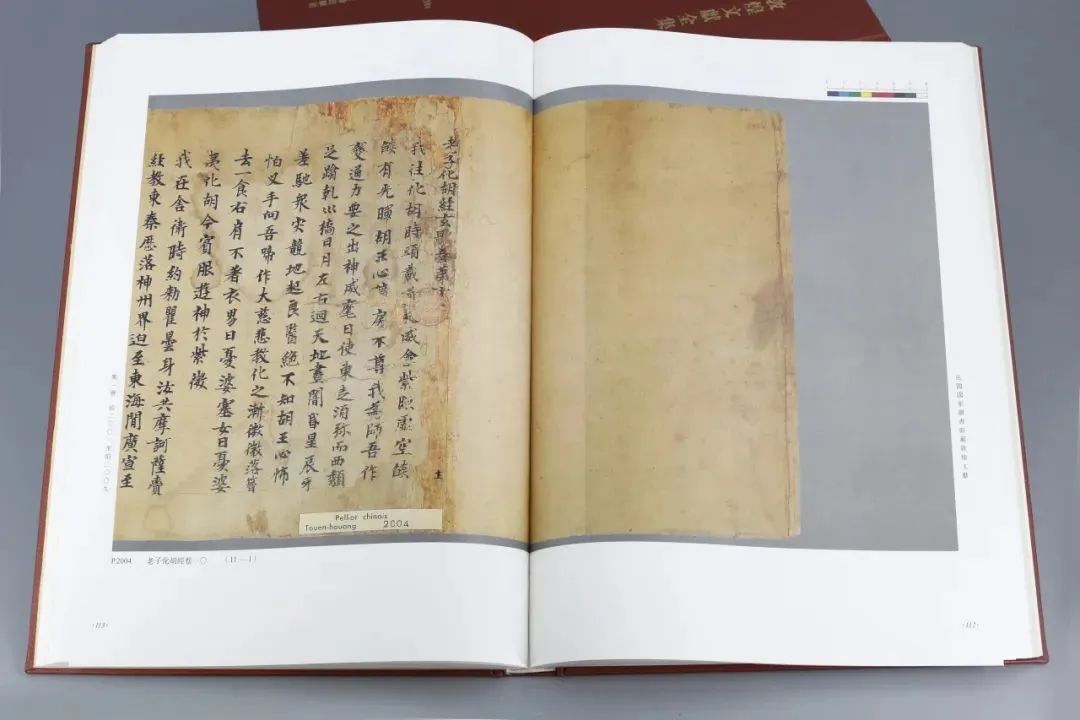 敦煌文獻全集
老子化胡經玄歌卷第十
我往化胡時頭戴威金紫照虛空焰
焰有光暉胡王心房不尊我為師吾作
變通力要之出神威麾日使東走須弥而西頹
足蹹乾坤橋日月左右迴天地晝闇昏星辰牙
差馳衆灾競地起良醫絕不知胡王心怖
怕叉手向吾啼作大慈悲教化之漸微微落簪
去一食右肩不著衣男曰憂婆塞女曰憂婆
夷化胡今賓服遊神於紫微
我在舍衛時約勑瞿曇身汝共摩訶薩賫
經教東秦歷落神州界迫至東海間廣宣至
Pelliot chinois
Touen-houang 2004
P.2004 老子化胡經卷一〇 (11—1)
第一冊 伯二〇〇一至伯二〇〇九
法國國家圖書館藏敦煌文獻
·113·
·112·